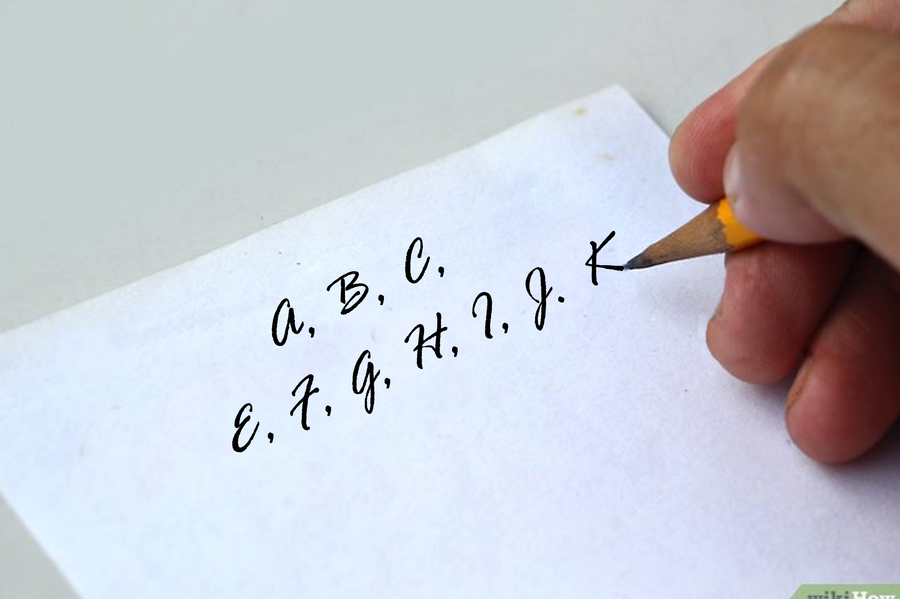 A, B, C,
E, F, G, H, I, J. K
wikiHow